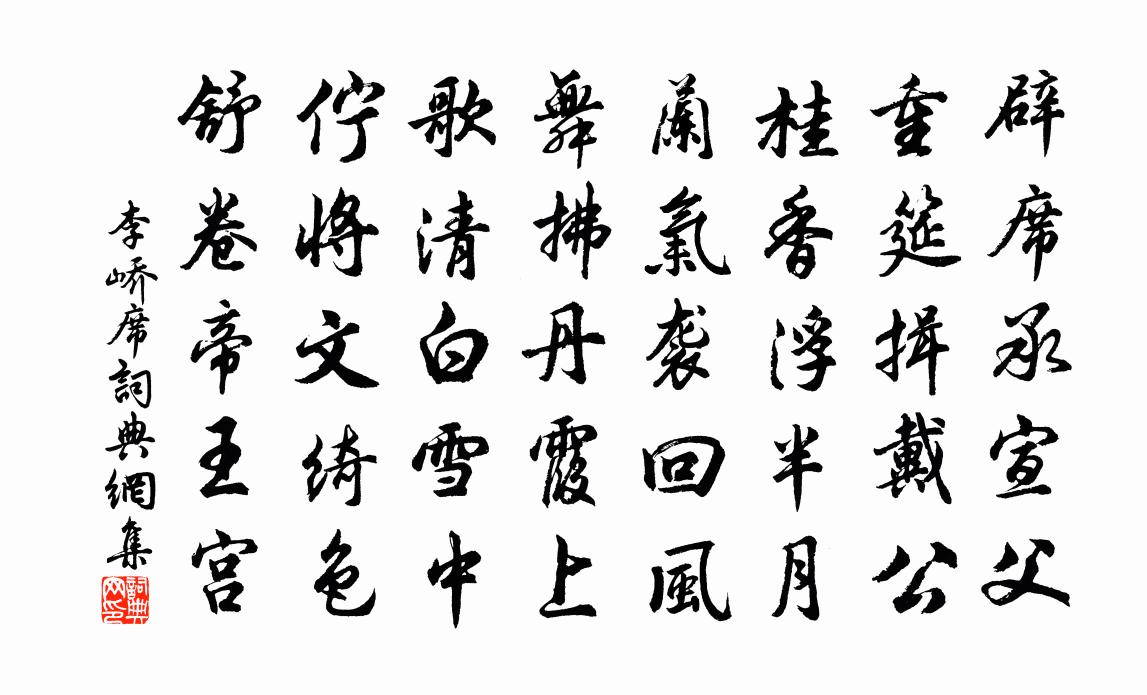 辟席承宣父
重筵揖戴公
桂香浮半月
蘭氣襲回風
舞拂丹霞上
歌清白雪中
佇將文綺色
舒卷帝王宮
李嶠席詞典網集
詞典網印